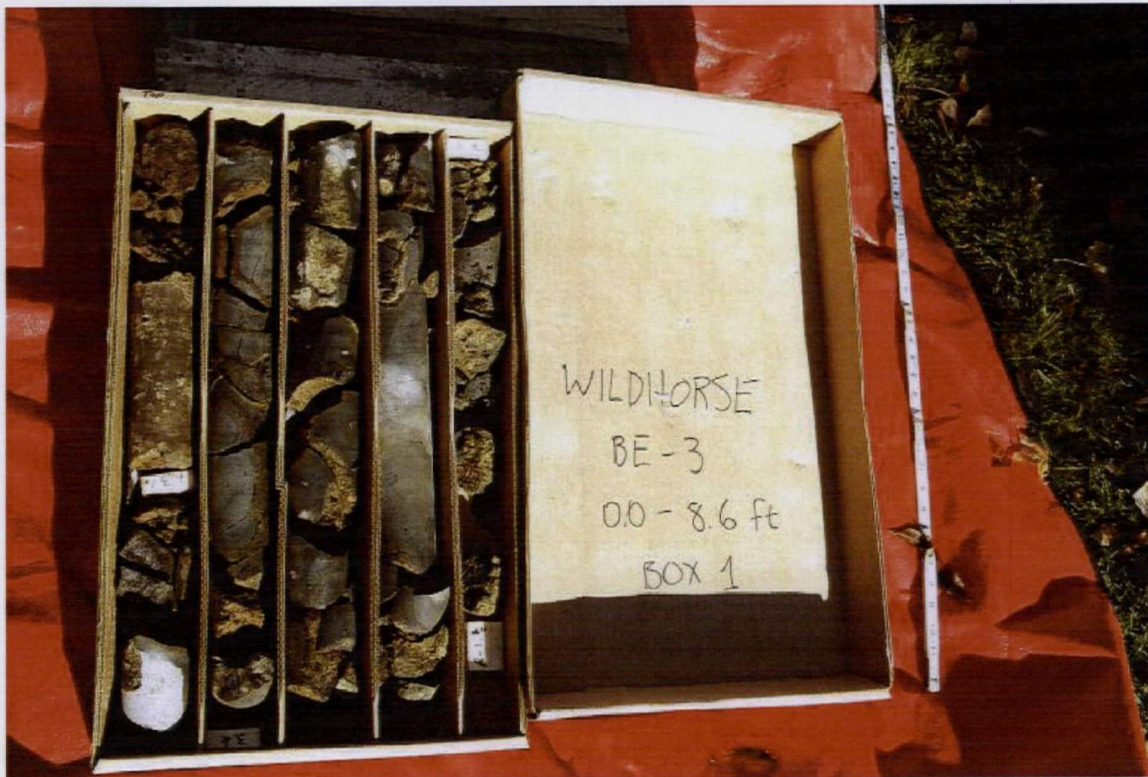 TOP
WILDHORSE
BE-3
0.0-8.6 ft
BOX 1